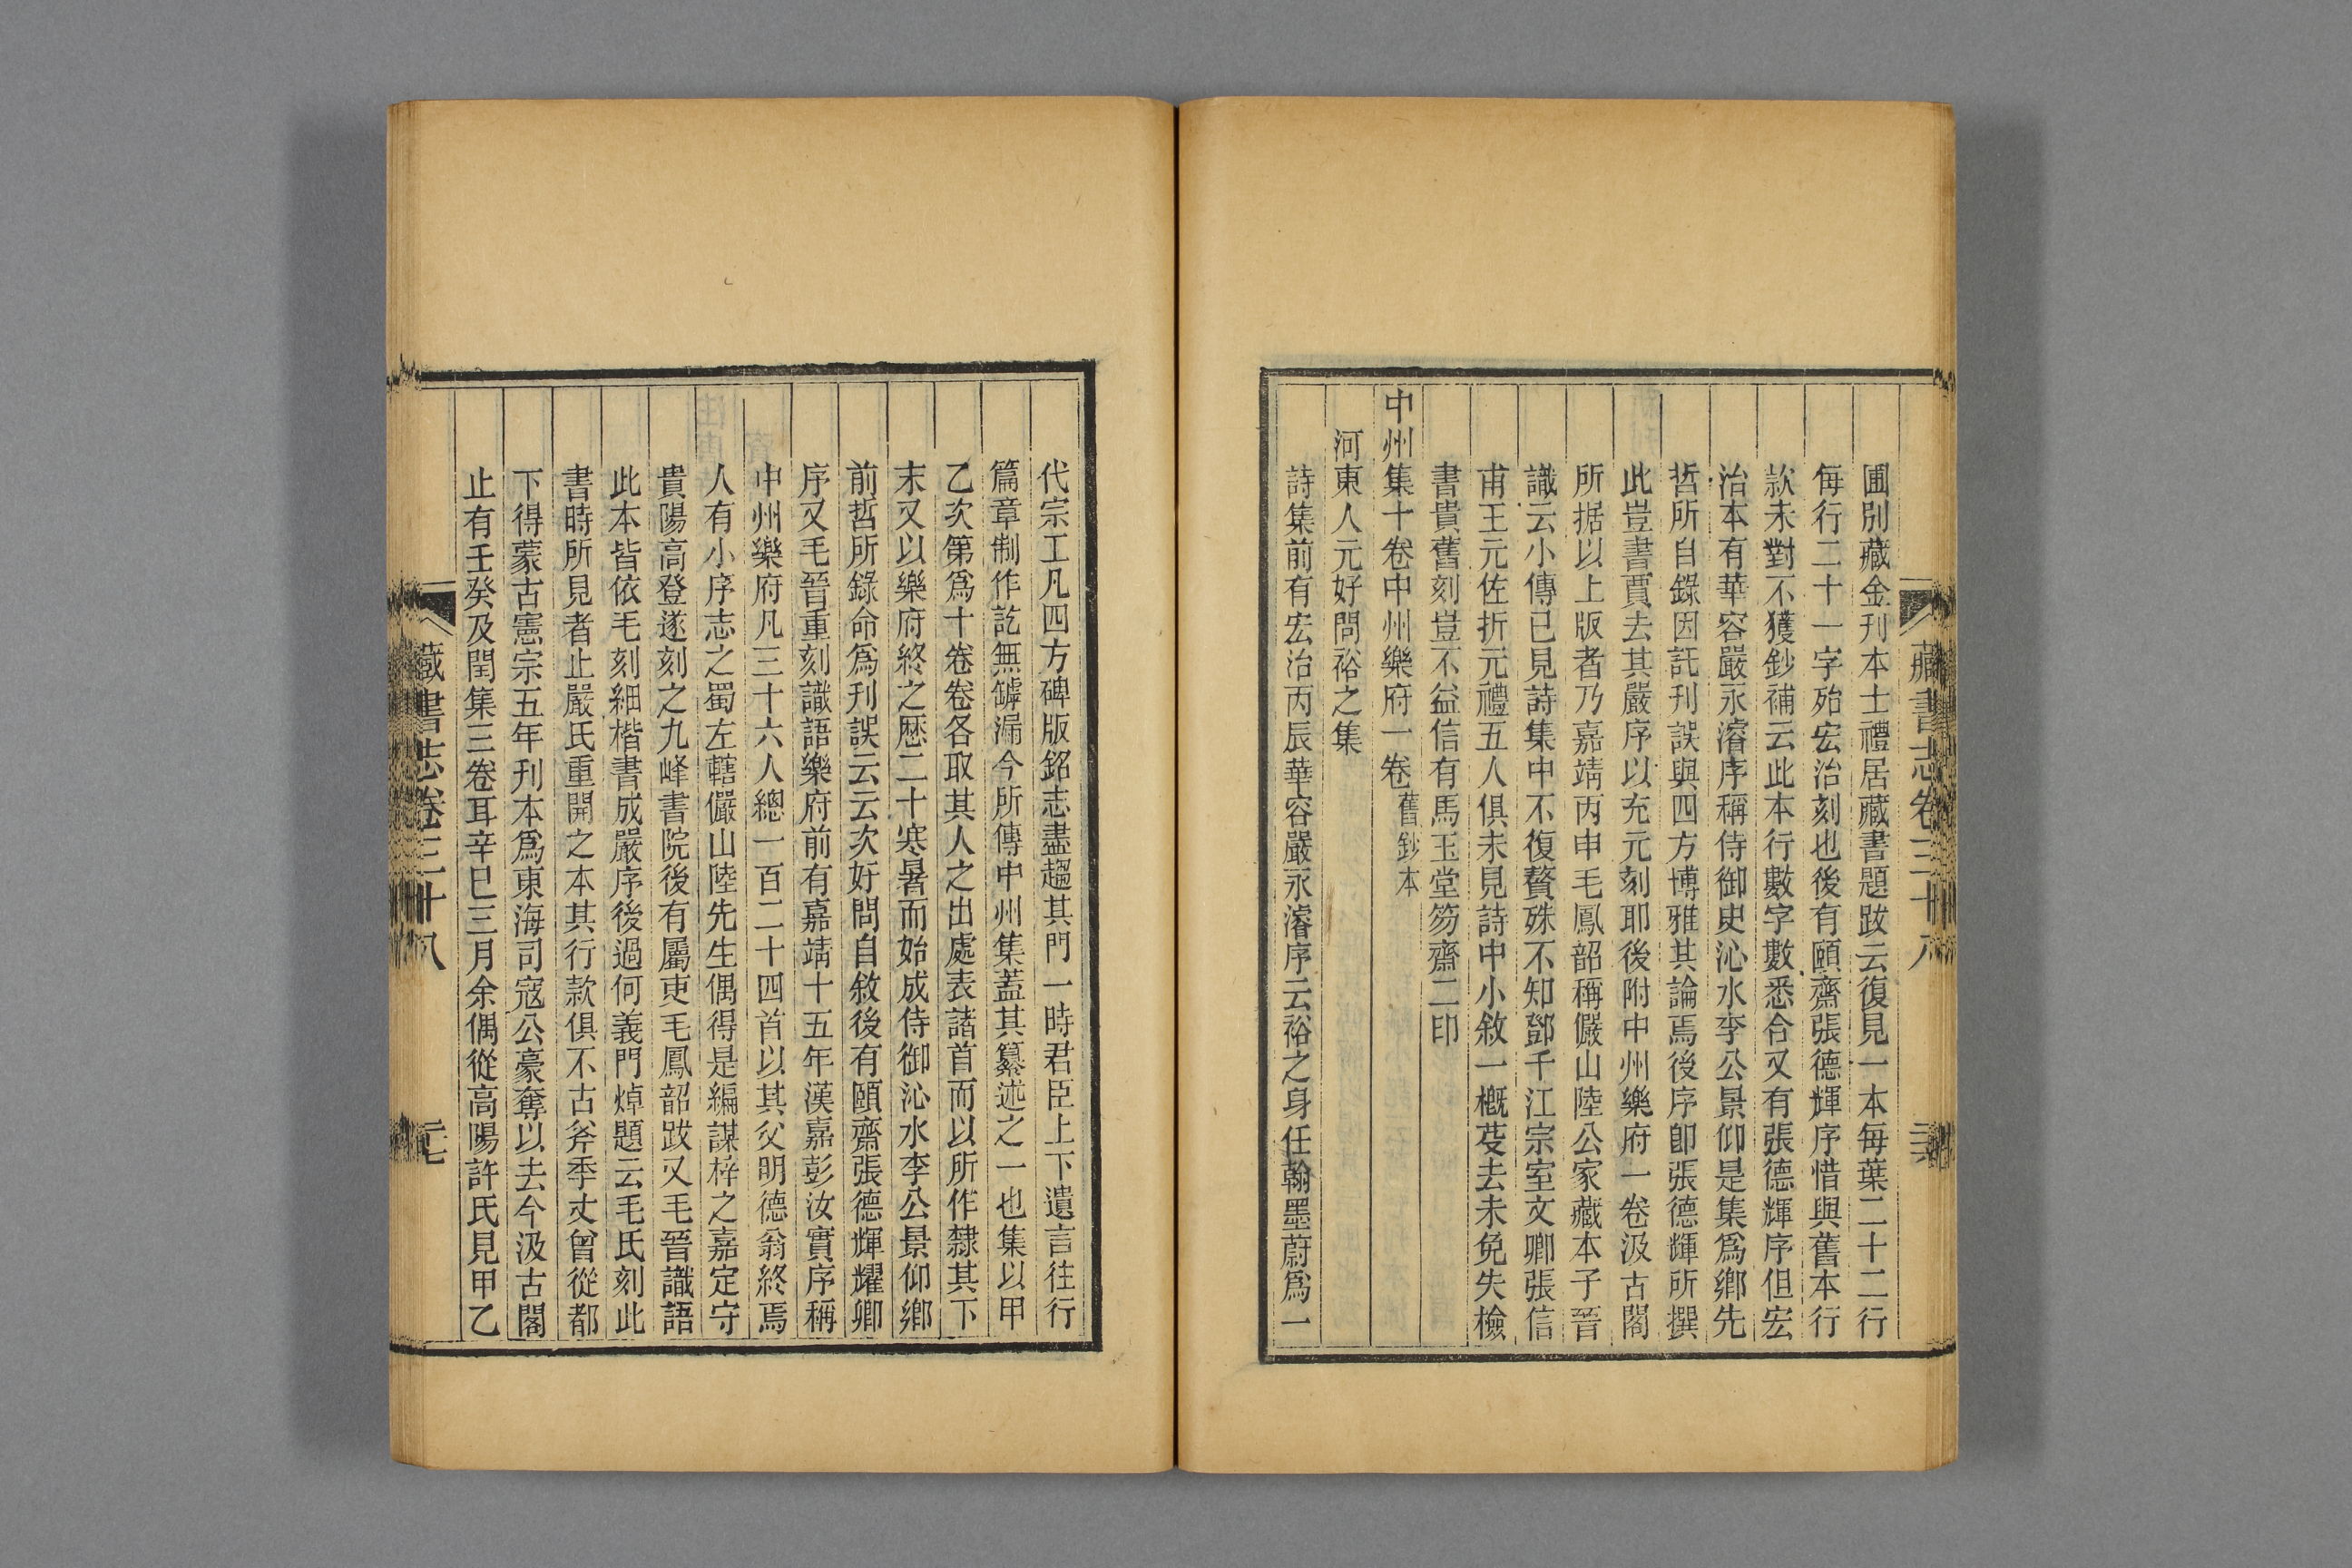 藏書志卷三十八
圃別藏金刊本士禮居藏書題跋云復見一本每葉二十二行
每行二十一字殆宏治刻也後有頤齋張德輝序惜與舊本行
款未對不獲鈔補云此本行數字數悉合又有張德輝序但宏
治本有華容嚴永濬序稱侍御史沁水李公景仰是集爲鄉先
哲所自錄因託刊誤與四方博雅其論焉後序卽張德輝所撰
此豈書賈去其嚴序以充元刻耶後附中州樂府一卷汲古閣
所据以上版者乃嘉靖丙申毛鳳韶稱儼山陸公家藏本子晉
識云小傳已見詩集中不復贅殊不知鄧千江宗室文卿張信
甫王元佐折元禮五人俱未見詩中小敘一槪芟去未免失檢
書貴舊刻豈不益信有馬玉堂笏齋二印
中州集十卷中州樂府一卷舊鈔本
河東人元好問裕之集
詩集前有宏治丙辰華容嚴永濬序云裕之身任翰墨蔚爲一
代宗工凡四方碑版銘志盡趨其門一時君臣上下遺言往行
篇章制作訖無罅漏今所傳中州集蓋其纂述之一也集以甲
乙次第爲十卷卷各取其人之出處表諸首而以所作隸其下
末又以樂府終之歷二十寒暑而始成侍御沁水李公景仰鄉
前哲所錄命爲刊誤云云次好問自敘後有頤齋張德輝耀卿
序又毛晉重刻識語樂府前有嘉靖十五年漢嘉彭汝實序稱
中州樂府凡三十六人總一百二十四首以其父明德翁終焉
人有小序志之蜀左轄儼山陸先生偶得是編謀梓之嘉定守
貴陽高登遂刻之九峰書院後有屬吏毛鳳韶跋又毛晉識語
此本皆依毛刻細楷書成嚴序後過何義門焯題云毛氏刻此
書時所見者止嚴氏重開之本其行款俱不古斧季丈曾從都
下得蒙古憲宗五年刊本爲東海司寇公豪奪以去今汲古閣
止有壬癸及閏集三卷耳辛巳三月余偶從高陽許氏見甲乙
藏書志卷三十八